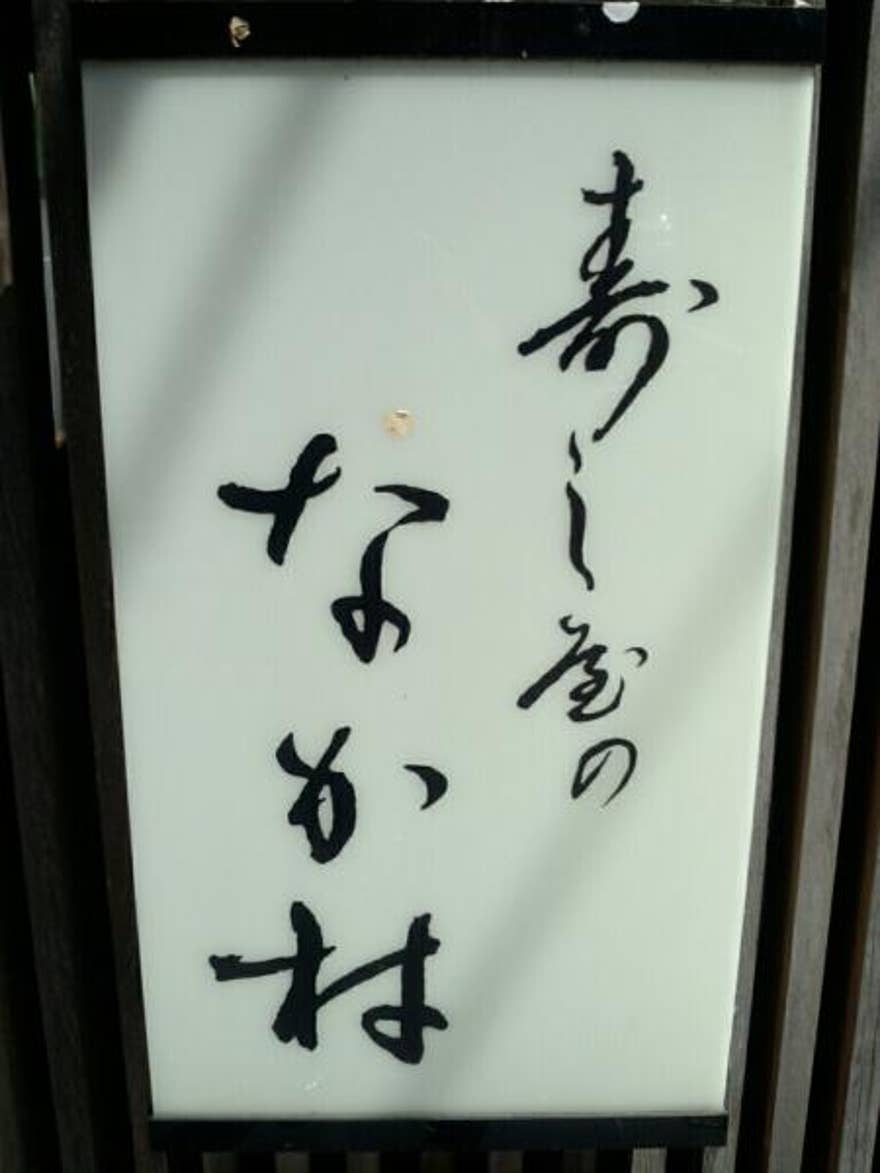 寿し屋の
なか村